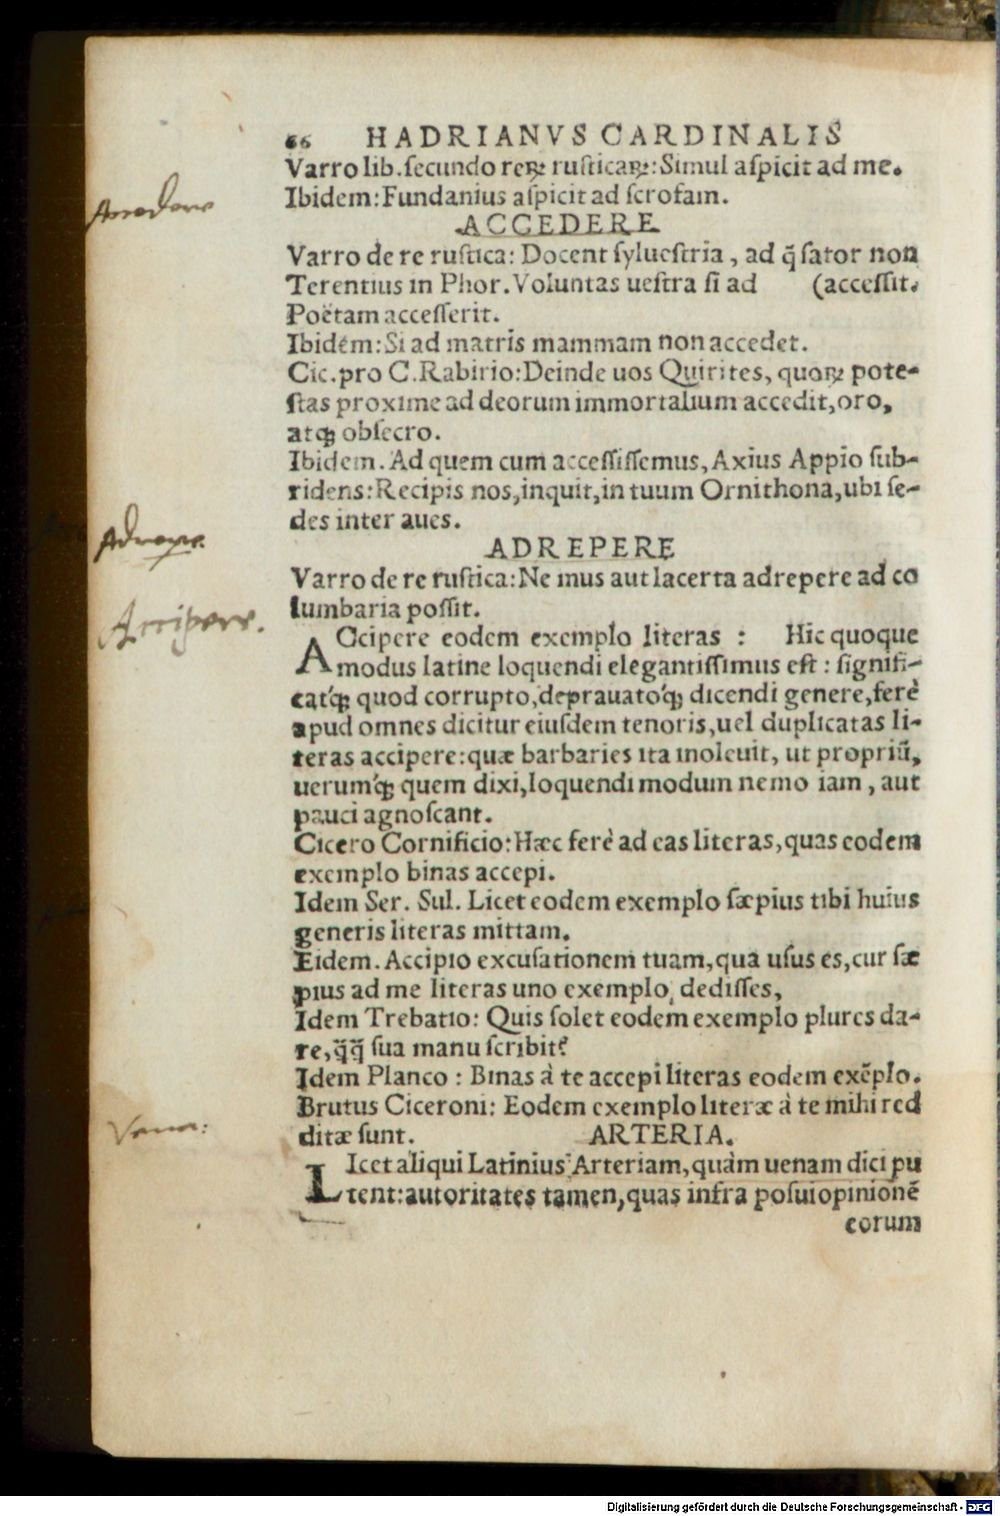 66 HADRIANVS CARDINALIS
Varro lib. ſecundo reꝝ ruſticaꝝ: Simul aſpicit ad me.
Ibidem: Fundanius aſpicit ad ſcrofam.
Accedere
ACCEDERE
Varro de re ruſtica: Docent ſylueſtria, ad q̃ ſator non
Terentius in Phor. Voluntas ueſtra ſi ad (acceſſit.
Poëtam acceſſerit.
Ibidém: Si ad matris mammam non accedet.
Cic. pro C. Rabirio: Deinde uos Quirites, quoꝝ pote-
ſtas proxime ad deorum immortalium accedit, oro,
atq; obſecro.
Ibidem. Ad quem cum acceſſiſſemus, Axius Appio ſub-
ridens: Recipis nos, inquit, in tuum Ornithona, ubi ſe-
des inter aues.
Adrepere.
ADREPERE
Varro de re ruſtica: Ne mus aut lacerta adrepere ad co
lumbaria poſſit.
Accipere.
ACcipere eodem exemplo literas : Hic quoque
modus latine loquendi elegantiſſimus eſt : ſignifi-
catq́; quod corrupto, deprauatoq́; dicendi genere, ferè
apud omnes dicitur eiuſdem tenoris, uel duplicatas li-
teras accipere: quæ barbaries ita inoleuit, ut propriũ,
uerumq́; quem dixi, loquendi modum nemo iam, aut
pauci agnoſcant.
Cicero Cornificio: Hæc ferè ad eas literas, quas eodem
exemplo binas accepi.
Idem Ser. Sul. Licet eodem exemplo ſæpius tibi huius
generis literas mittam.
Eidem. Accipio excuſationem tuam, qua uſus es, cur ſæ
pius ad me literas uno exemplo dediſſes,
Idem Trebatio: Quis ſolet eodem exemplo plures da-
re, q̃q̃ ſua manu ſcribit?
Idem Planco : Binas à te accepi literas eodem exẽplo.
Brutus Ciceroni: Eodem exemplo literæ à te mihi red
ditæ ſunt. ARTERIA.
Vena:
LIcet aliqui Latinius Arteriam, quàm uenam dici pu
tent: autoritates tamen, quas infra poſui opinionẽ
eorum
Digitalisierung gefördert durch die Deutsche Forschungsgemeinschaft - DFG